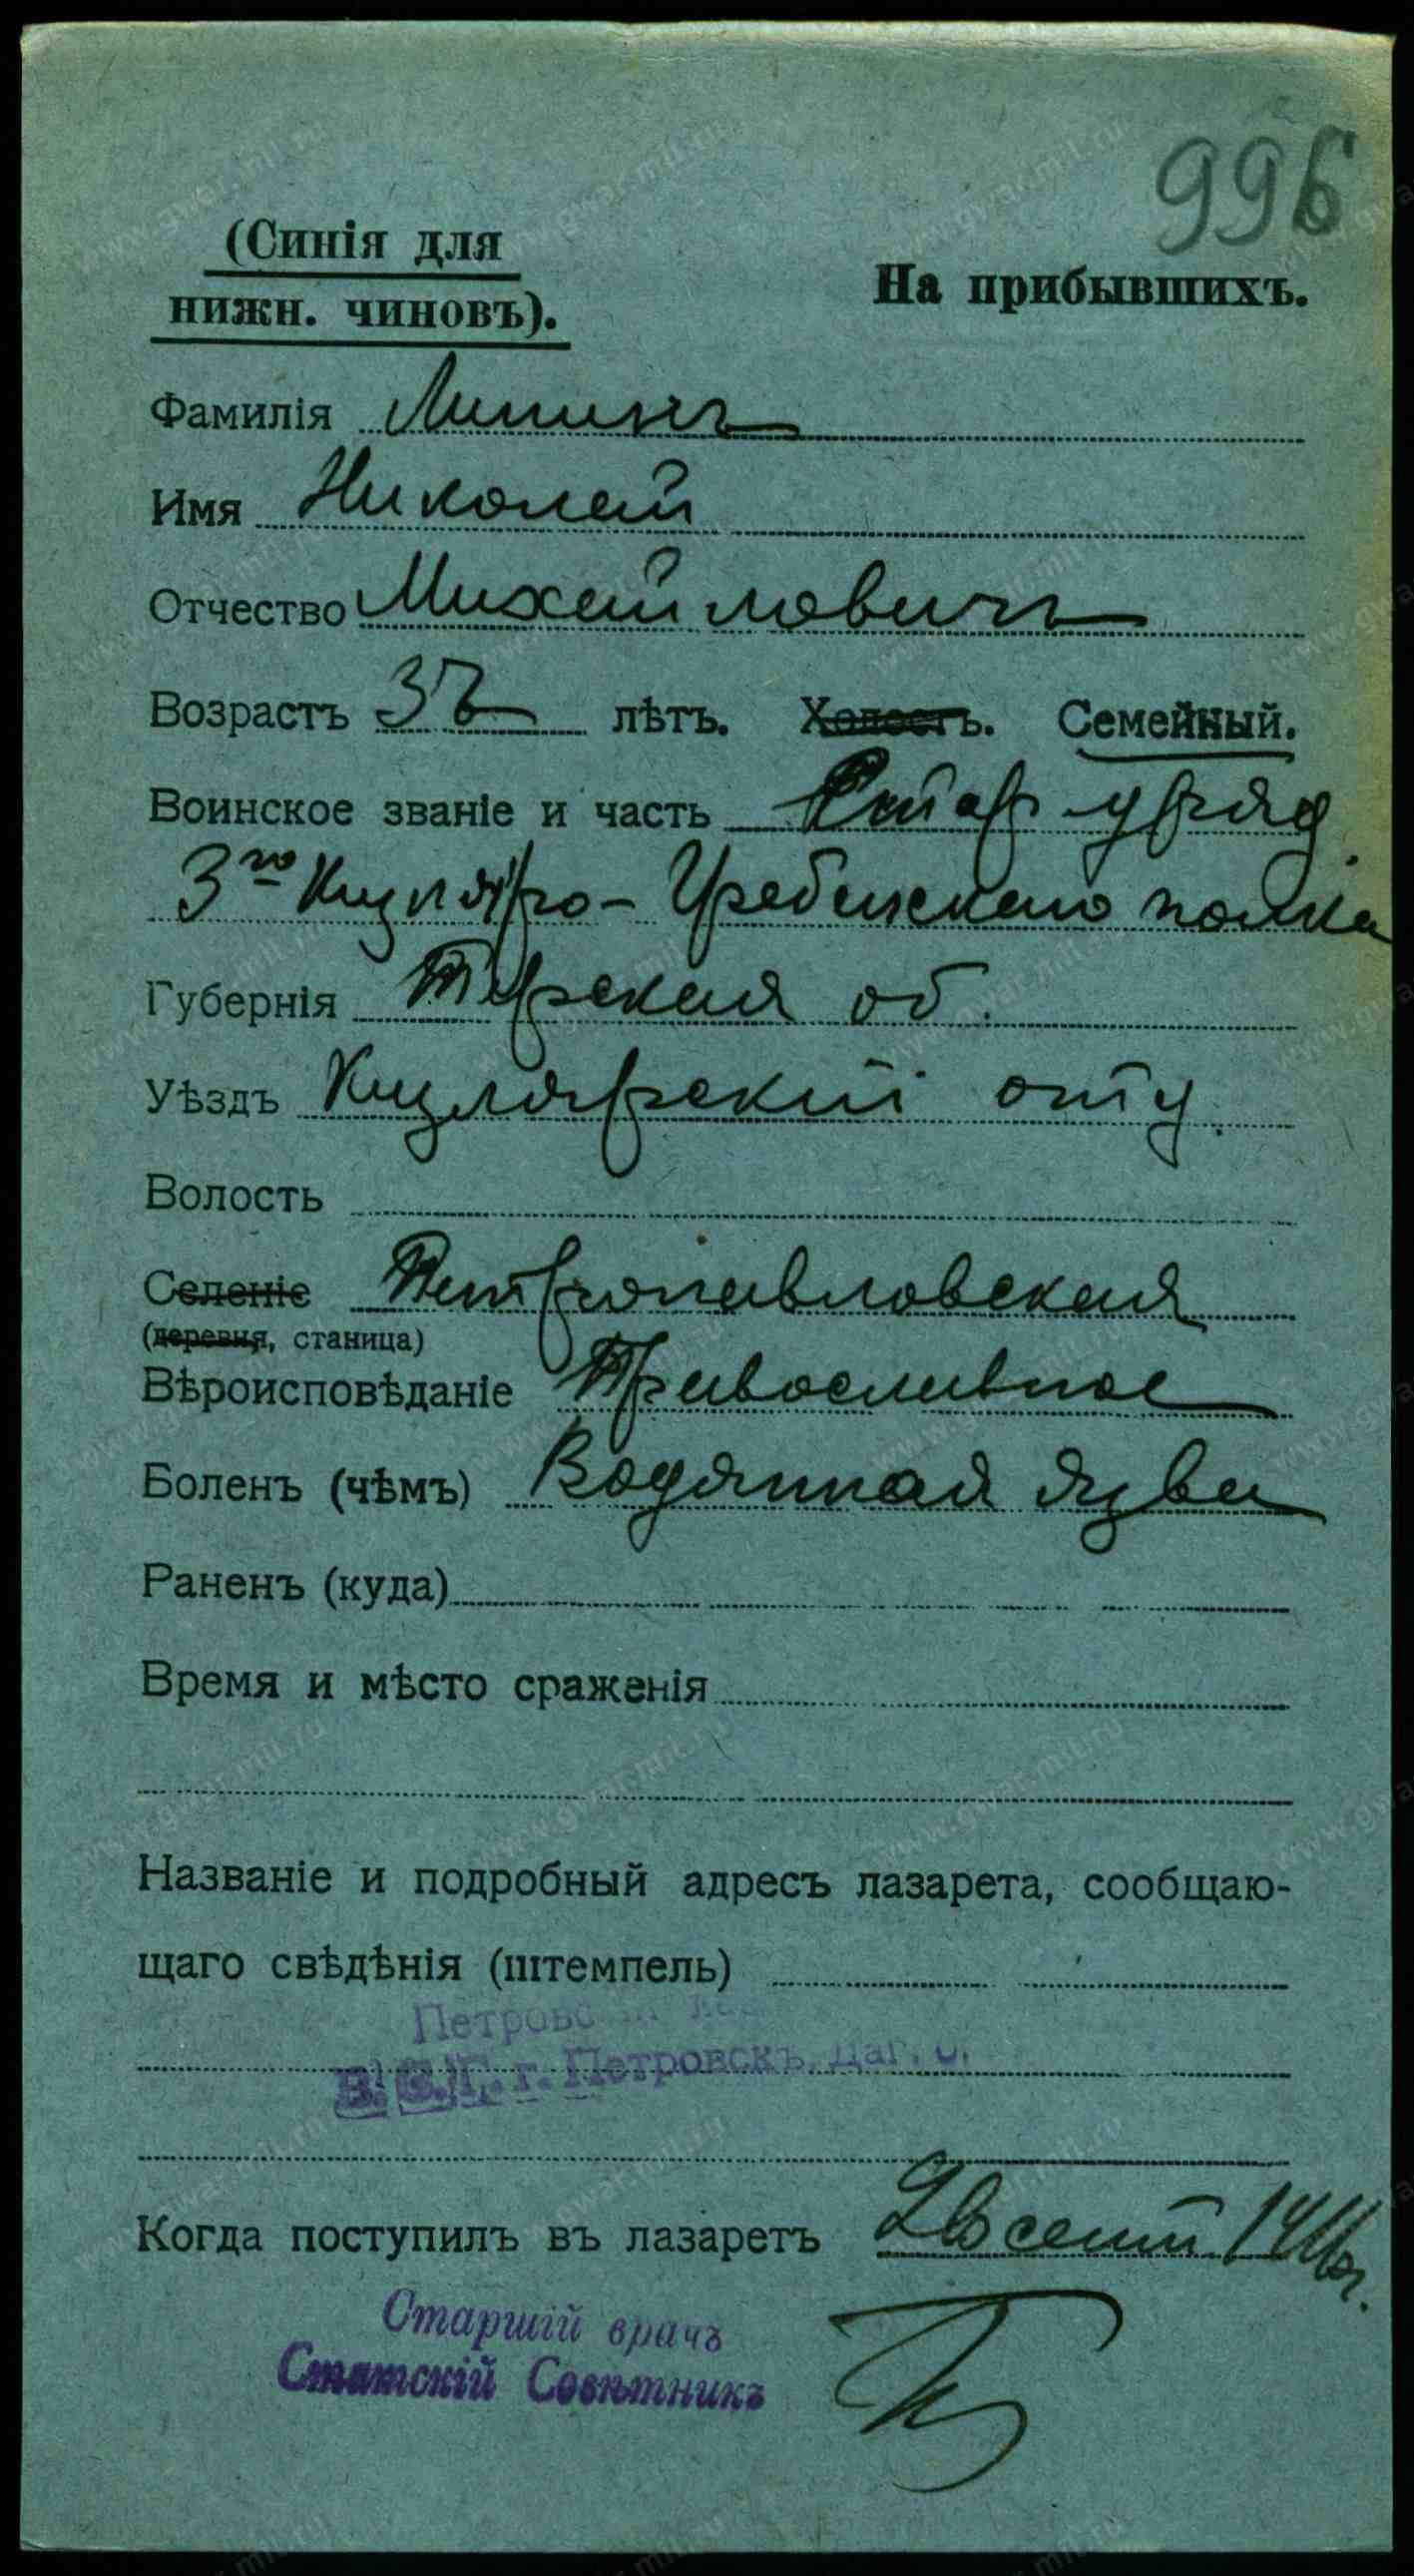 996
(Синія для
нижн. чиновъ).
На прибывшихъ.
Фамилія
Имя Николай
Отчество Михайловичъ
Возрастъ лѣтъ. Холостъ. Семейный.
Воинское званіе и часть уряд
3го Кизляро-Гребенского полка
Губернія Терская об.
Уѣздъ Кизлярскій отд.
Волость
Селеніе Петропавловская
(деревня, станица)
Вѣроисповѣданіе Православное
Боленъ (чѣмъ) Водянная язва
Раненъ (куда)
Время и мѣсто сраженія
Названіе и подробный адресъ лазарета, сообщаю-
щаго свѣдѣнія (штемпель)
г. Петровскъ, Даг. о.
Когда поступилъ въ лазаретъ сент
Старшій врачъ
Статскій Совѣтникъ